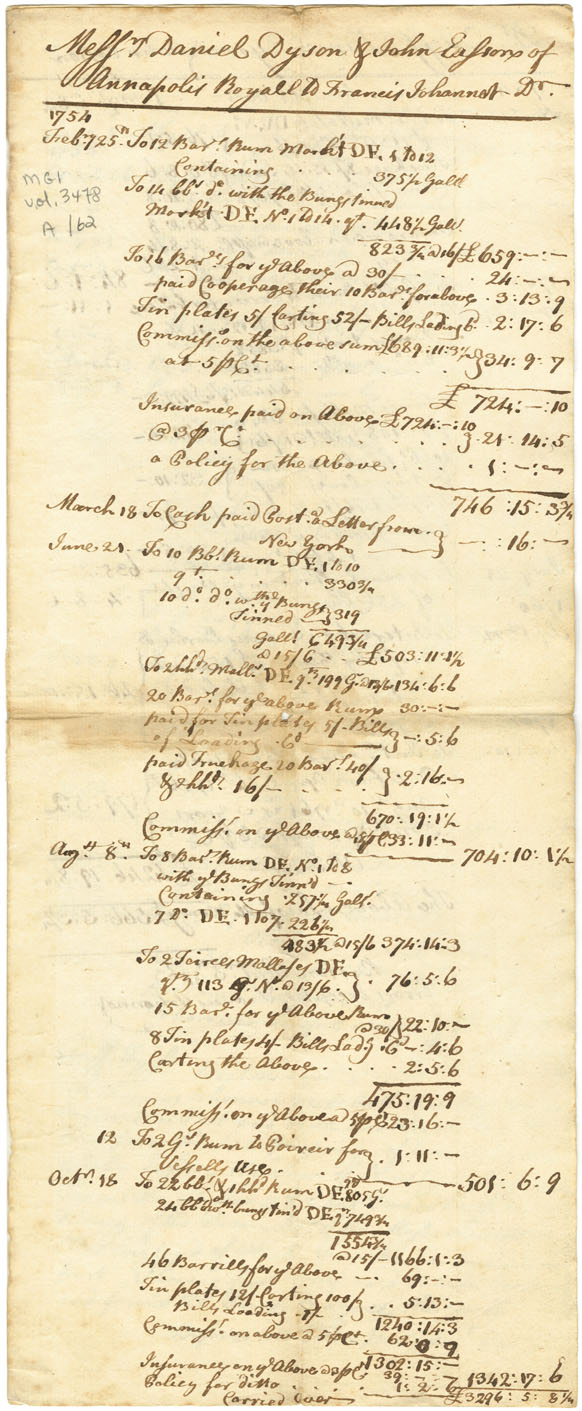 Messrs Daniel Dyson & John Easson of
Annapolis Royall To Francis Johannot Dr.
1754
MG1
vol. 3478
A 162
Febry 25th To 12 Barrs Rum Markt DE. 1 to 12
Containing 375¼ Galls
To 14 bbs do. with the Bungs tinned
Markt DE. No. 1 to 14. qt. 448½ Galls.
823¾ @ 16/ £659:-:-
To 16 Barrs for ye Above a 30/ 24:-:-
paid Cooperage their 10 Barrs for above . 3:13:9
Tin plates 5/ Carting 52/- Bills Lading 6d . 2:17:6
Commissn on the above sum £689:11:3½ } 34:9:7
at 5 pCt. . . . .
£ 724:-:10
Insurance paid on Above £724:-:10
@ 3 pr Ct . . . . . } 21:14:5
a Policy for the Above . . . 1:-:-
746:15:3¾
March 18 To Cash paid Post. a Letter from } -:16:-
New York
June 21 To 10 Bbs Rum DE. 1 to 10
qt . . . . 330¾
10 do. do. wth ye Bungs } 319
Tinned
Galls 649¾
@ 15/6 . . £503:11:1½
To 2 hhds Mollss. DE. qty 199 Gs. @ 13/6 134:6:6
20 Barrs for ye above Rum 30:-:-
paid for Tin plates 5/- Bills } -:5:6
of Loading 6d
paid Truckage 20 Barrs 40/ } 2:16:-
& 2 hhds. 16/-
670:19:1½
Commissn. on ye Above @ 5p C 33:11:-
704:10:1½
Augst 8th To 8 Barrs Rum DE. No. 1 to 8
with ye Bungs Tinn'd
Containing 257¼ Galls.
7 Do DE. 1 to 7. 226¼
483½ @ 15/6 374:14:3
To 2 Teirces Mollases DE. }
qty 113 Gs. No. @ 13/6. } . 76:5:6
15 Barrs. for ye Above Rum
@ 30/ } 22:10:-
8 Tin plates 4/- Bills Ladg 6d -:4:6
Carting the Above . . . 2:5:6
475:19:9
Commissn. on ye Above a 5 pCt 23:16:-
12 To 2 Gs. Rum to Poireir for }
Vessells Use. } 1:11:-
501:6:9
Octr. 18 To 22 bbs. & 1 hhd Rum DE. qt 805 Gs.
24 bb do. wth bungs tin'd DE. qt 749¾
1554¾
@ 15/- 1166:1:3
46 Barrills for ye Above -- 69:-:-
Tin plates 12/ Carting 100/ } . . 5:13:-
Bills Loading 1/-
1240:14:3
Commissn. on above @ 5 pCt. 62:0:9
1302:15:-
Insurance on ye Above @ 3 pCt 39:-:-
Policy for ditto 1:2:6 1342:17:6
Carried Over £3296:5:8¾